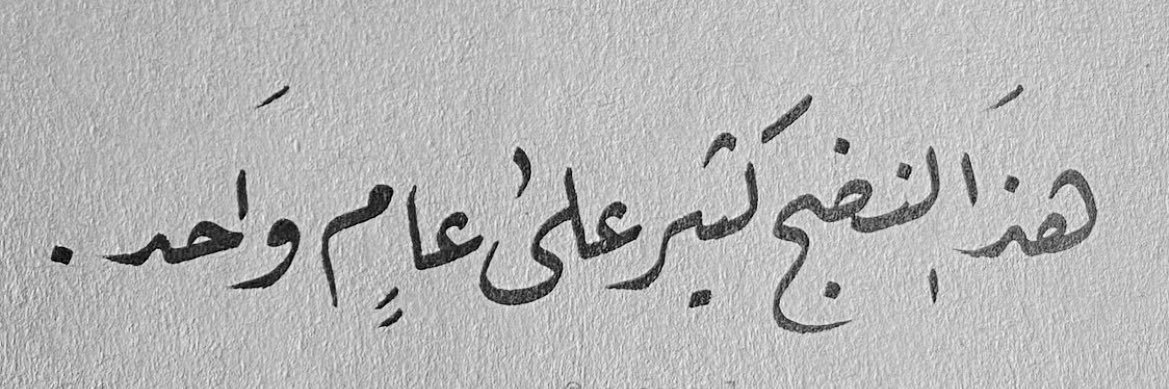 هذَا النضج كثير علىٰ عامٍ وَاحد.